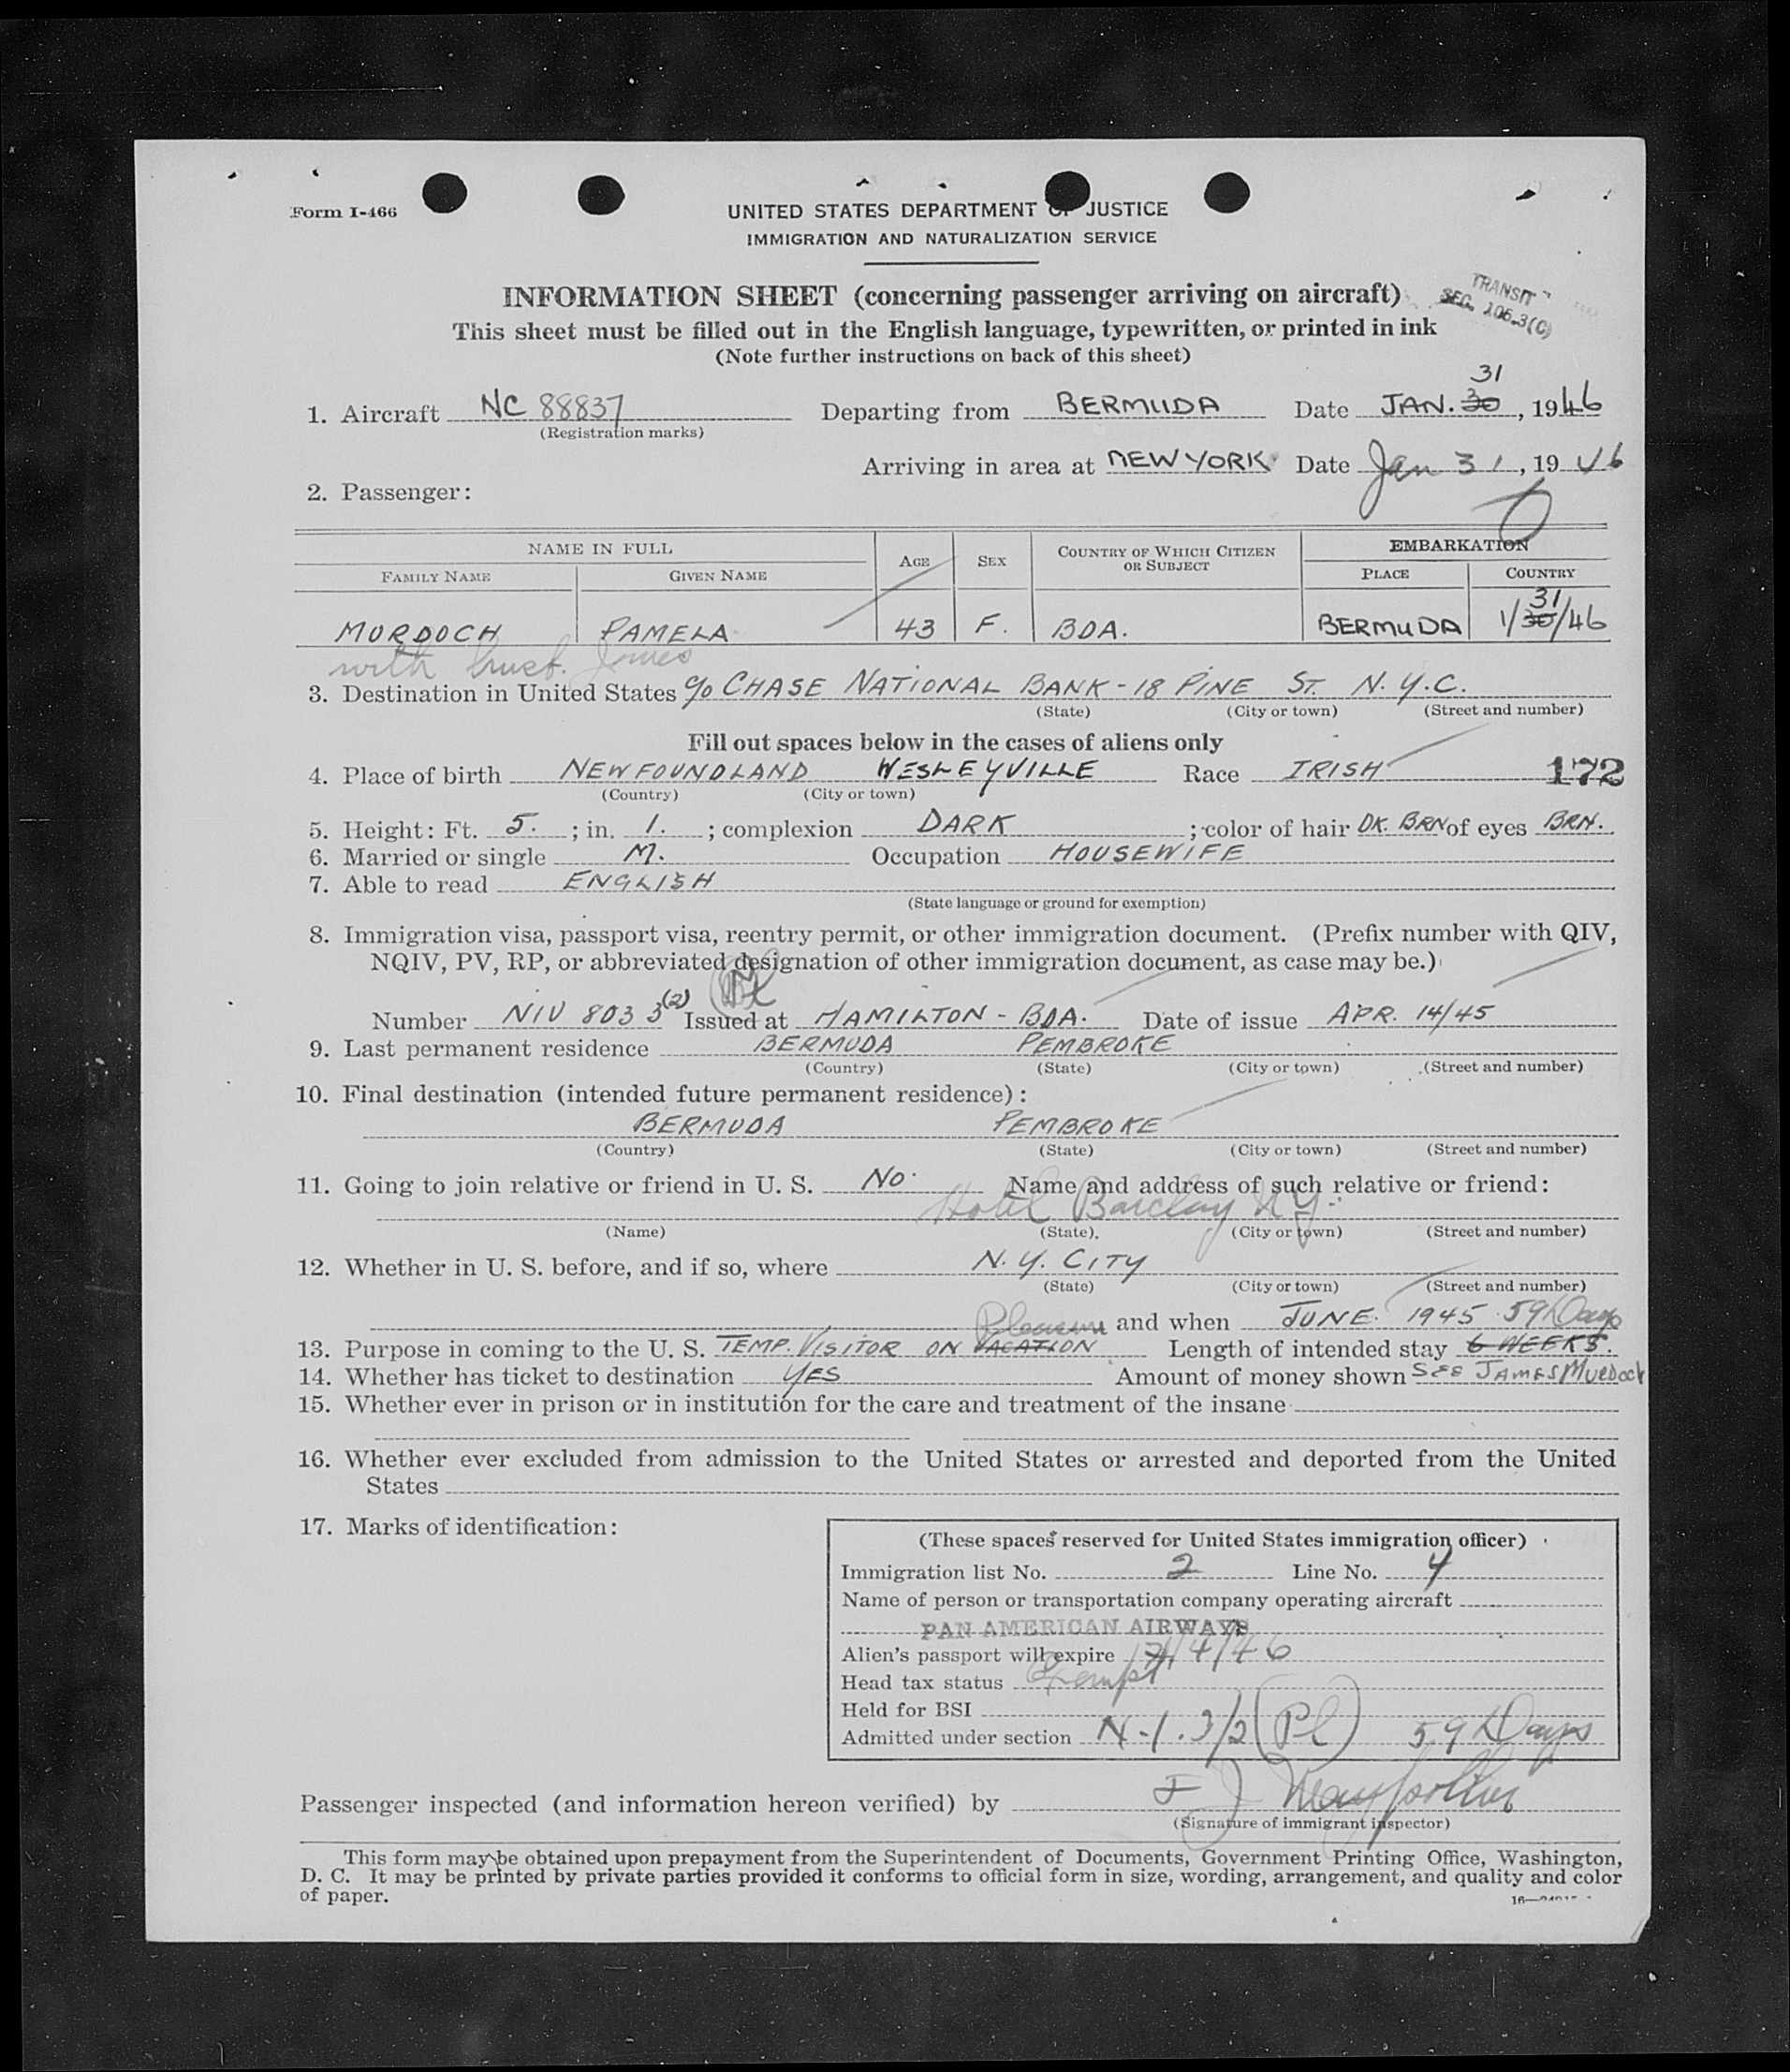 Form I-466
UNITED STATES DEPARTMENT OF JUSTICE
IMMIGRATION AND NATURALIZATION SERVICE
INFORMATION SHEET (concerning passenger arriving on aircraft)
TRANSIT
SEC. 106.3(C)
This sheet must be filled out in the English language, typewritten, or printed in ink
(Note further instructions on back of this sheet)
31
1. Aircraft NC 88837 Departing from BERMUDA Date JAN. 30, 1946
(Registration marks)
Arriving in area at NEW YORK Date Jan 31, 1946
2. Passenger:
NAME IN FULL AGE SEX COUNTRY OF WHICH CITIZEN OR SUBJECT EMBARKATION
FAMILY NAME GIVEN NAME PLACE COUNTRY
31
MURDOCH PAMELA 43 F. BDA. BERMUDA 1/30/46
with husb. James
3. Destination in United States c/o CHASE NATIONAL BANK - 18 PINE ST. N.Y.C.
(State) (City or town) (Street and number)
Fill out spaces below in the cases of aliens only
4. Place of birth NEWFOUNDLAND WESLEYVILLE Race IRISH 172
(Country) (City or town)
5. Height: Ft. 5. ; in. 1. ; complexion DARK ; color of hair DK. BRN of eyes BRN.
6. Married or single M. Occupation HOUSEWIFE
7. Able to read ENGLISH
(State language or ground for exemption)
8. Immigration visa, passport visa, reentry permit, or other immigration document. (Prefix number with QIV,
NQIV, PV, RP, or abbreviated designation of other immigration document, as case may be.)
Number NIV 8033 (2) Issued at HAMILTON - BDA. Date of issue APR. 14/45
9. Last permanent residence BERMUDA PEMBROKE
(Country) (State) (City or town) (Street and number)
10. Final destination (intended future permanent residence):
BERMUDA PEMBROKE
(Country) (State) (City or town) (Street and number)
11. Going to join relative or friend in U. S. No. Name and address of such relative or friend:
Hotel Barclay NY
(Name) (State) (City or town) (Street and number)
12. Whether in U. S. before, and if so, where N.Y. CITY
(State) (City or town) (Street and number)
Pleasure and when JUNE 1945 59 Days
13. Purpose in coming to the U. S. TEMP. VISITOR ON VACATION Length of intended stay 6 WEEKS.
14. Whether has ticket to destination YES Amount of money shown SEE JAMES MURDOCK
15. Whether ever in prison or in institution for the care and treatment of the insane
16. Whether ever excluded from admission to the United States or arrested and deported from the United
States
17. Marks of identification:
(These spaces reserved for United States immigration officer)
Immigration list No. 2 Line No. 4
Name of person or transportation company operating aircraft
PAN AMERICAN AIRWAYS
Alien's passport will expire 4/46
Head tax status Exempt
Held for BSI
Admitted under section N-1. 3/2 (Pl) 59 Days
Passenger inspected (and information hereon verified) by
(Signature of immigrant inspector)
This form may be obtained upon prepayment from the Superintendent of Documents, Government Printing Office, Washington,
D. C. It may be printed by private parties provided it conforms to official form in size, wording, arrangement, and quality and color
of paper.